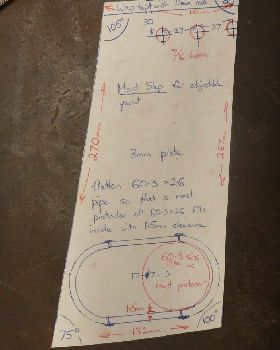 wing top with 12mm rod
105°
30
37
37
7/16 holes
Mast Step for adjustable
yacht
270mm
267mm
3mm plate
flatten 60.3 x 2.6
pipe so that a mast
protador of 60.3 x 2.6 fits
inside with 1.5mm clearance
60.3 x 2.6
pipe as
mast protador
17
17.3
1.5mm
75°
132mm
100°